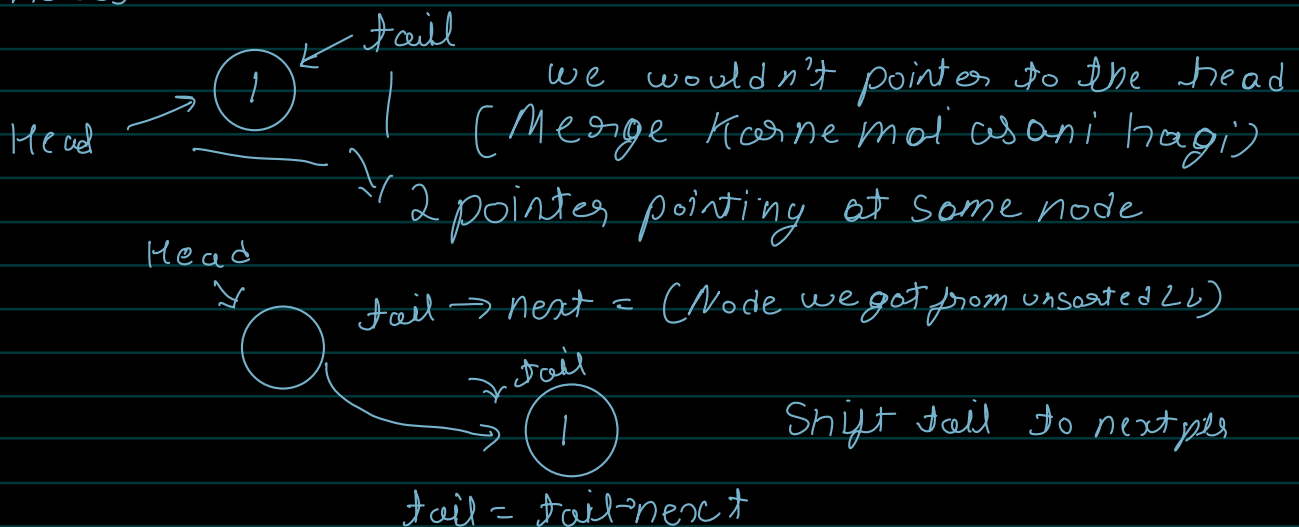 tail
1
we wouldn't pointer to the head
Head
(Merge Karne mai asani hogi)
2 pointer pointing at same node
Head
tail → next = (Node we got from unsorted LL)
tail
1
Shift tail to next ptr
tail = tail→next